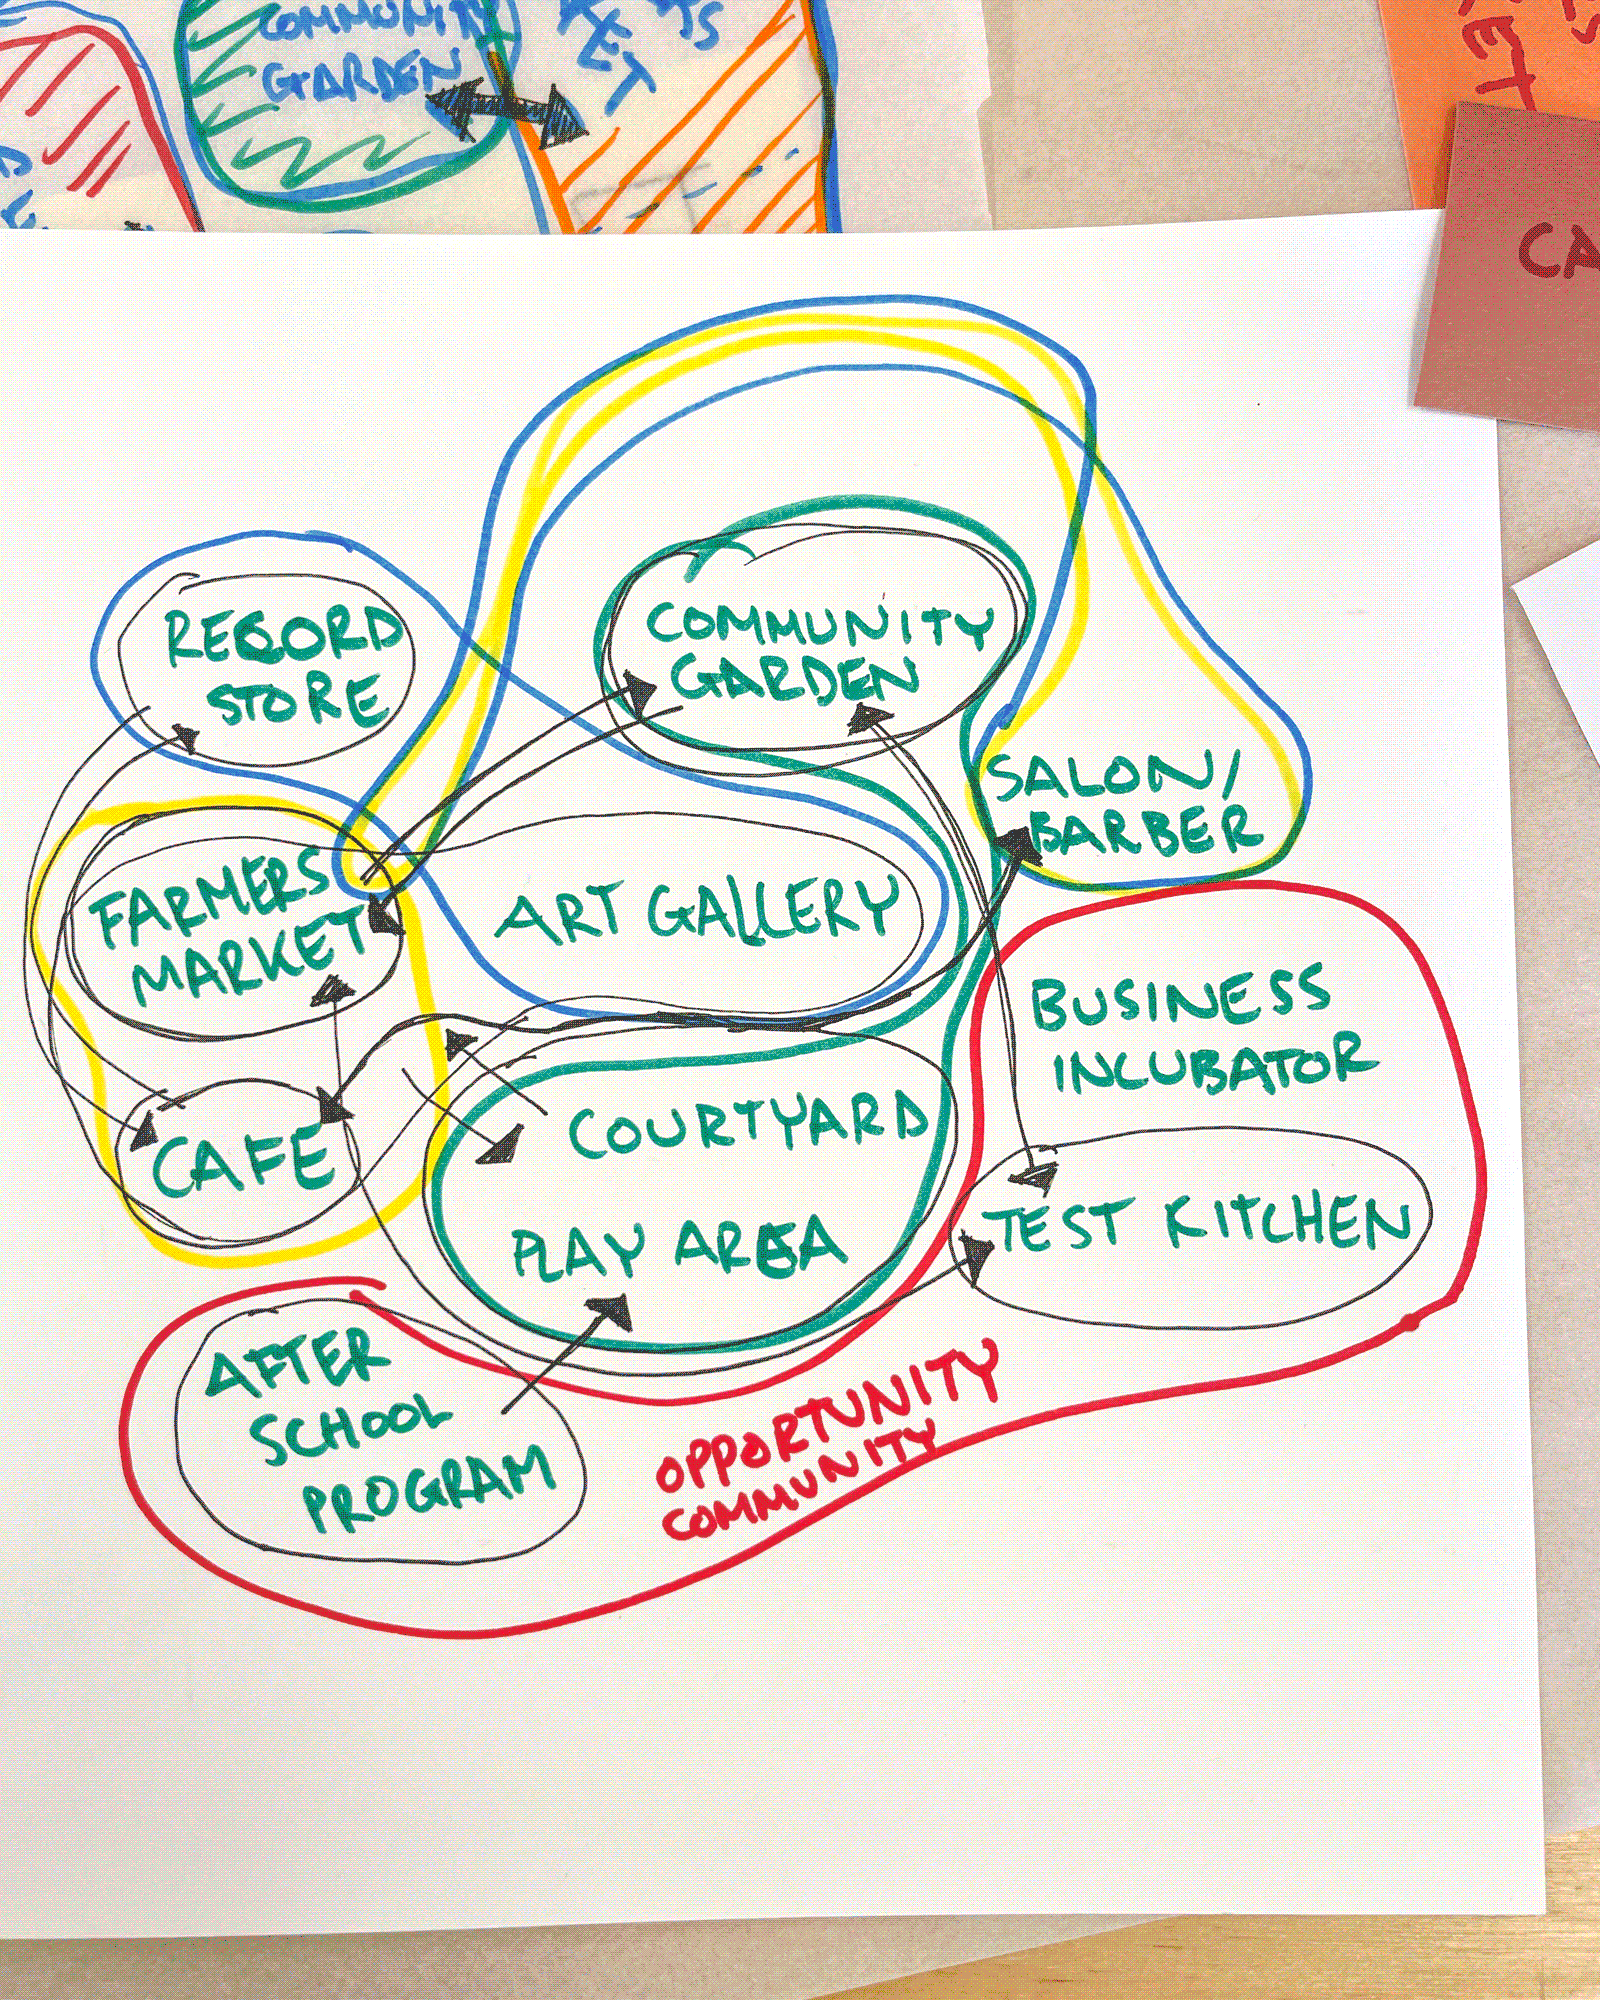 COMMUNITY
GARDEN
KET
CA
RECORD
STORE
COMMUNITY
GARDEN
SALON/
BARBER
FARMERS
MARKET
ART GALLERY
BUSINESS
INCUBATOR
CAFE
COURTYARD
PLAY AREA
TEST KITCHEN
AFTER
SCHOOL
PROGRAM
OPPORTUNITY
COMMUNITY